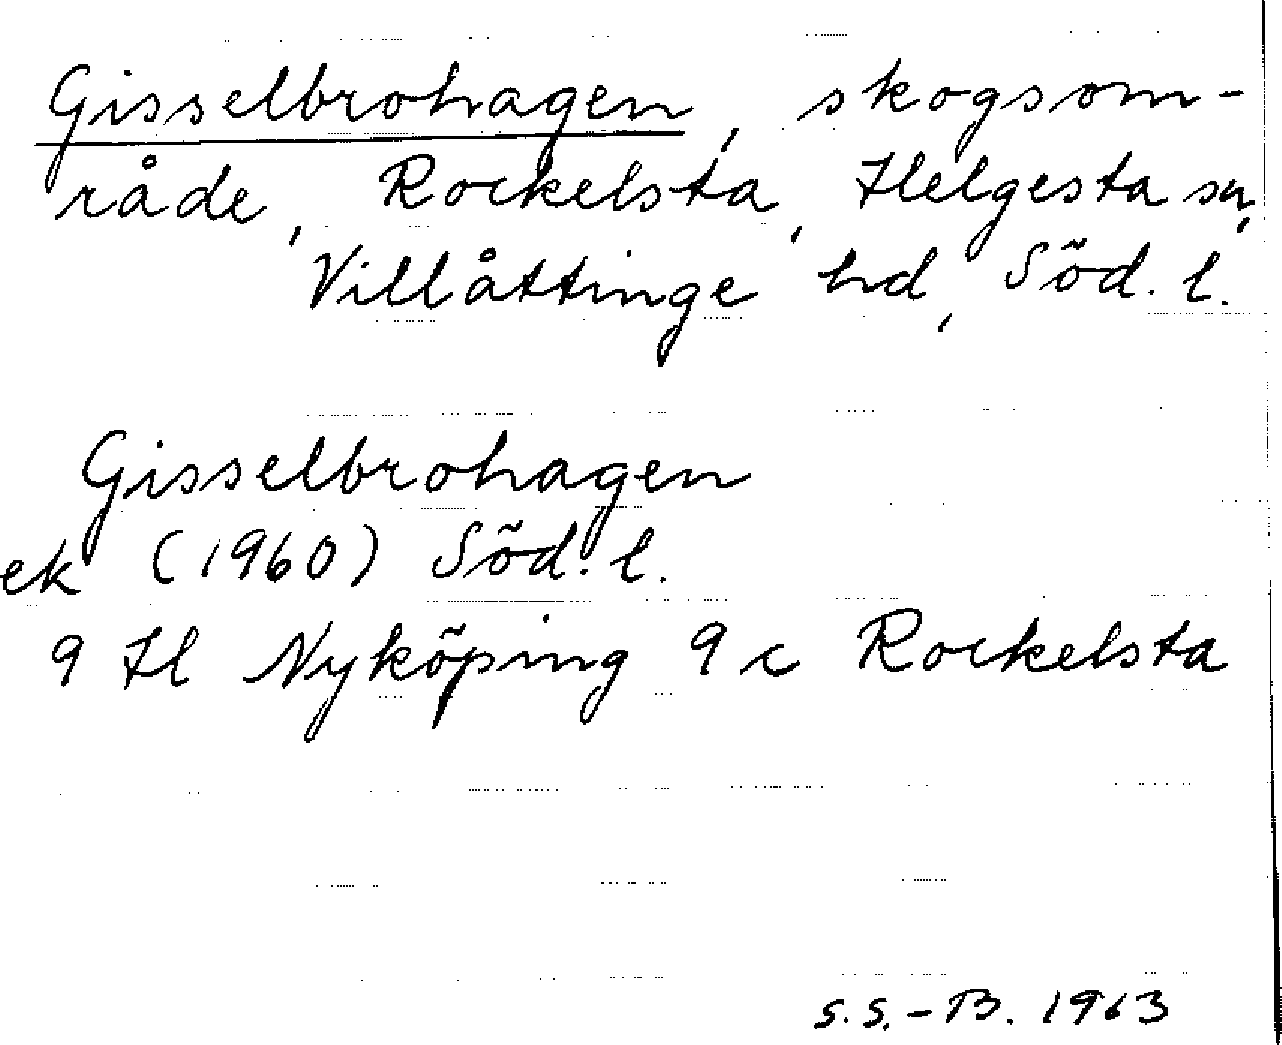 Gisselbrohagen, skogsom-
råde, Rockelsta, Helgesta sn,
Villåttinge hd, Söd. l.
Gisselbrohagen
ek (1960) Söd. l.
9 H Nyköping 9 c Rockelsta
S.S.-B. 1963